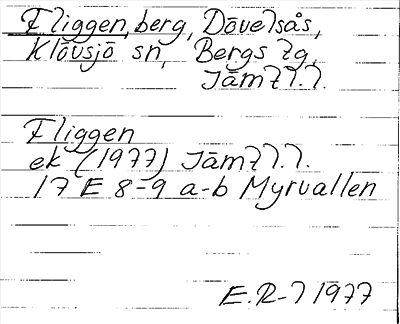 Fliggen, berg, Dövelsås,
Klövsjö sn, Bergs tg,
Jämtl.l.
Fliggen
ek (1977) Jämtl.l.
17 E 8-9 a-b Myrvallen
E.R-l 1977